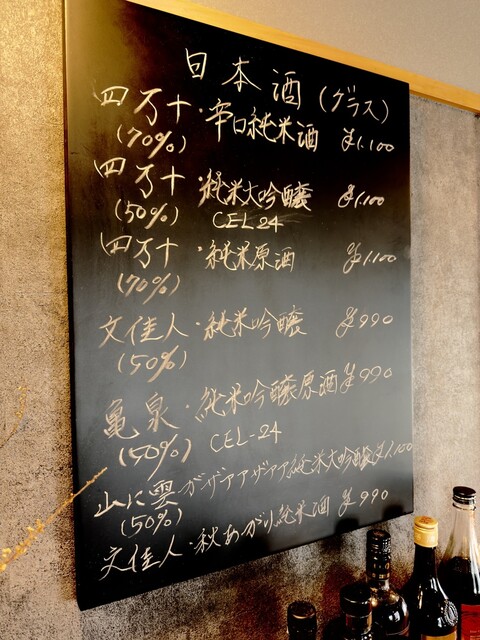 日本酒(グラス)
四万十・辛口純米酒 ¥1.100
(70%)
四万十・純米大吟醸 ¥1.100
(50%) CEL24
四万十・純米原酒 ¥1.100
(70%)
文佳人・純米吟醸 ¥990
(50%)
亀泉・純米吟醸原酒 ¥990
(50%) CEL-24
山に雲 がザアアザアア純米大吟醸 ¥1.100
(50%)
文佳人・秋あがり純米酒 ¥990